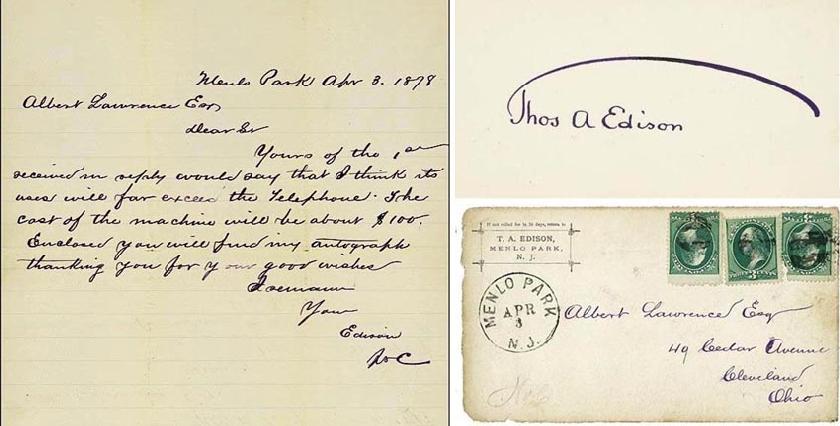 Menlo Park Apr 3. 1878
Albert Lawrence Esq
Dear Sr
Yours of the 1st
received in reply would say that I think its
uses will far exceed the Telephone. The
cost of the machine will be about $100.
Enclosed you will find my autograph
thanking you for your good wishes
I remain
Your
Edison
Thos A Edison
If not called for in 10 days, return to
T. A. EDISON,
MENLO PARK,
N. J.
MENLO PARK
APR
3
N.J.
Albert Lawrence Esq
49 Cedar Avenue
Cleveland
Ohio